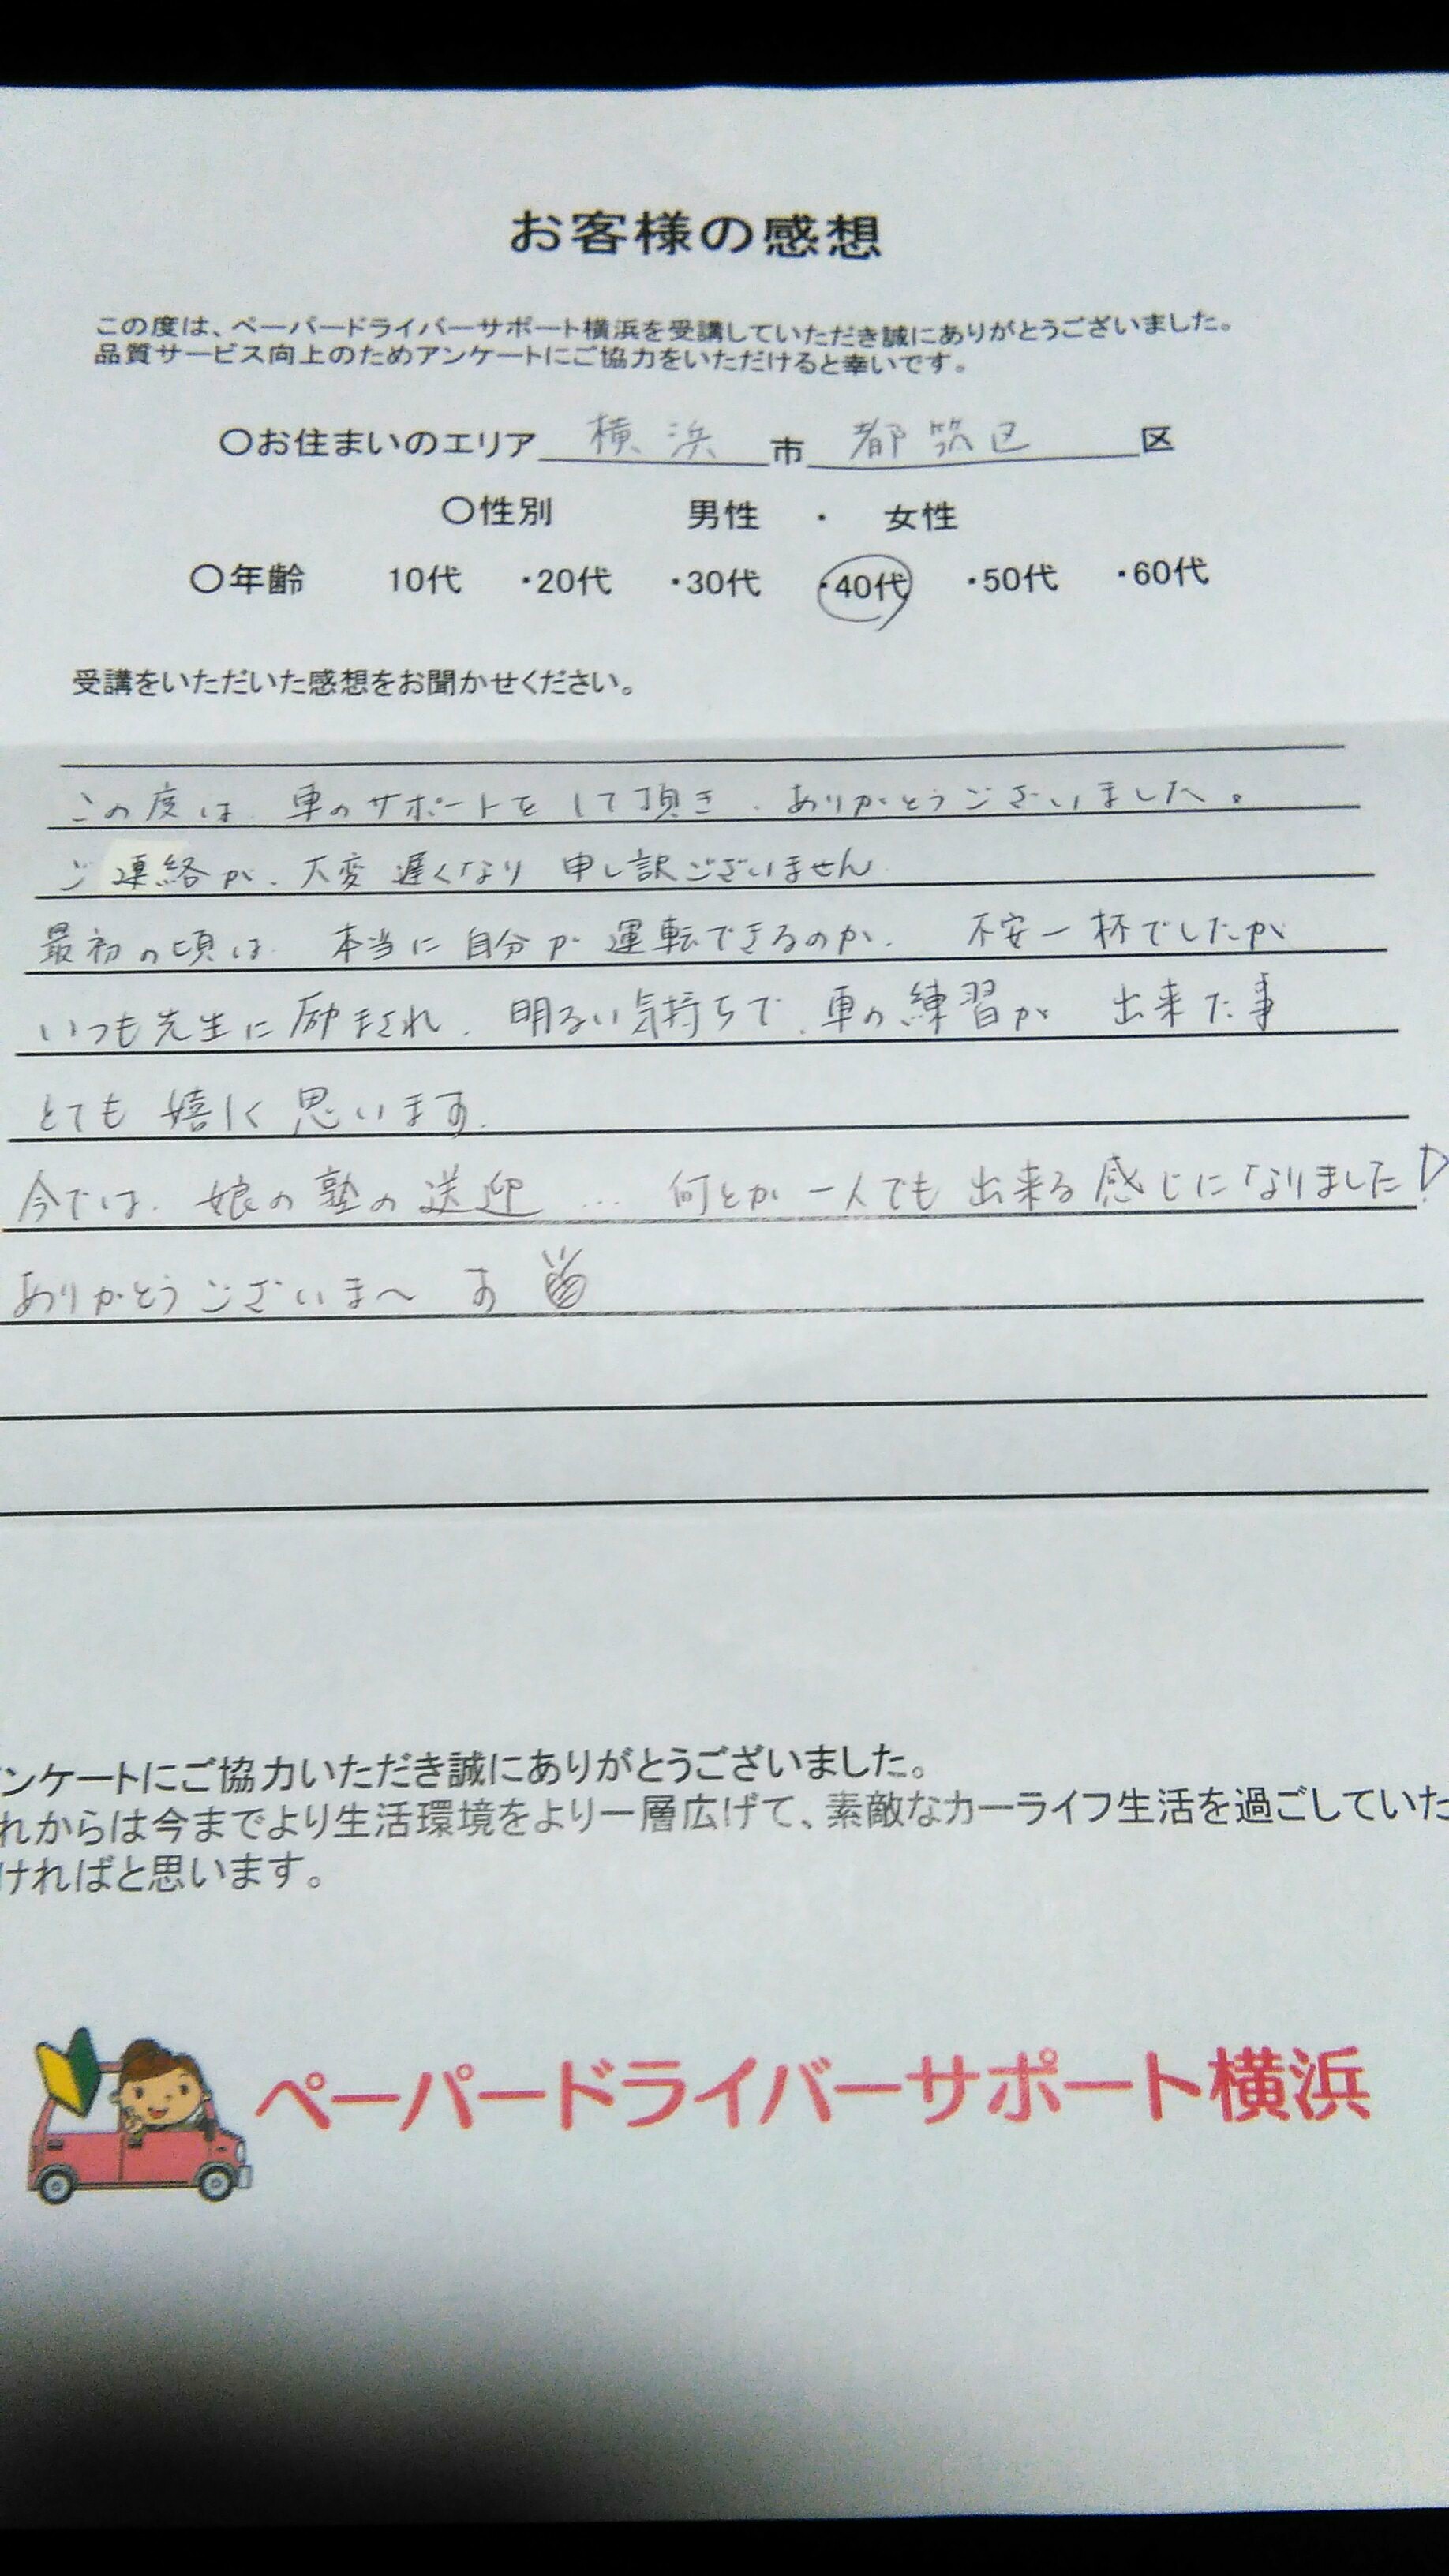 お客様の感想
この度は、ペーパードライバーサポート横浜を受講していただき誠にありがとうございました。
品質サービス向上のためアンケートにご協力をいただけると幸いです。
〇お住まいのエリア 横浜 市 都筑区 区
〇性別 男性 ・ 女性
〇年齢 10代 ・20代 ・30代 ・40代 ・50代 ・60代
受講をいただいた感想をお聞かせください。
この度は、車のサポートをして頂き、ありがとうございました。
ご連絡が、大変遅くなり申し訳ございません
最初の頃は 本当に自分が運転できるのか、不安一杯でしたが
いつも先生に励まされ、明るい気持ちで、車の練習が 出来た事
とても嬉しく思います。
今では、娘の塾の送迎 … 何とか一人でも出来る感じになりました!
ありがとうございま〜す
ンケートにご協力いただき誠にありがとうございました。
れからは今までより生活環境をより一層広げて、素敵なカーライフ生活を過ごしていた
ければと思います。
ペーパードライバーサポート横浜